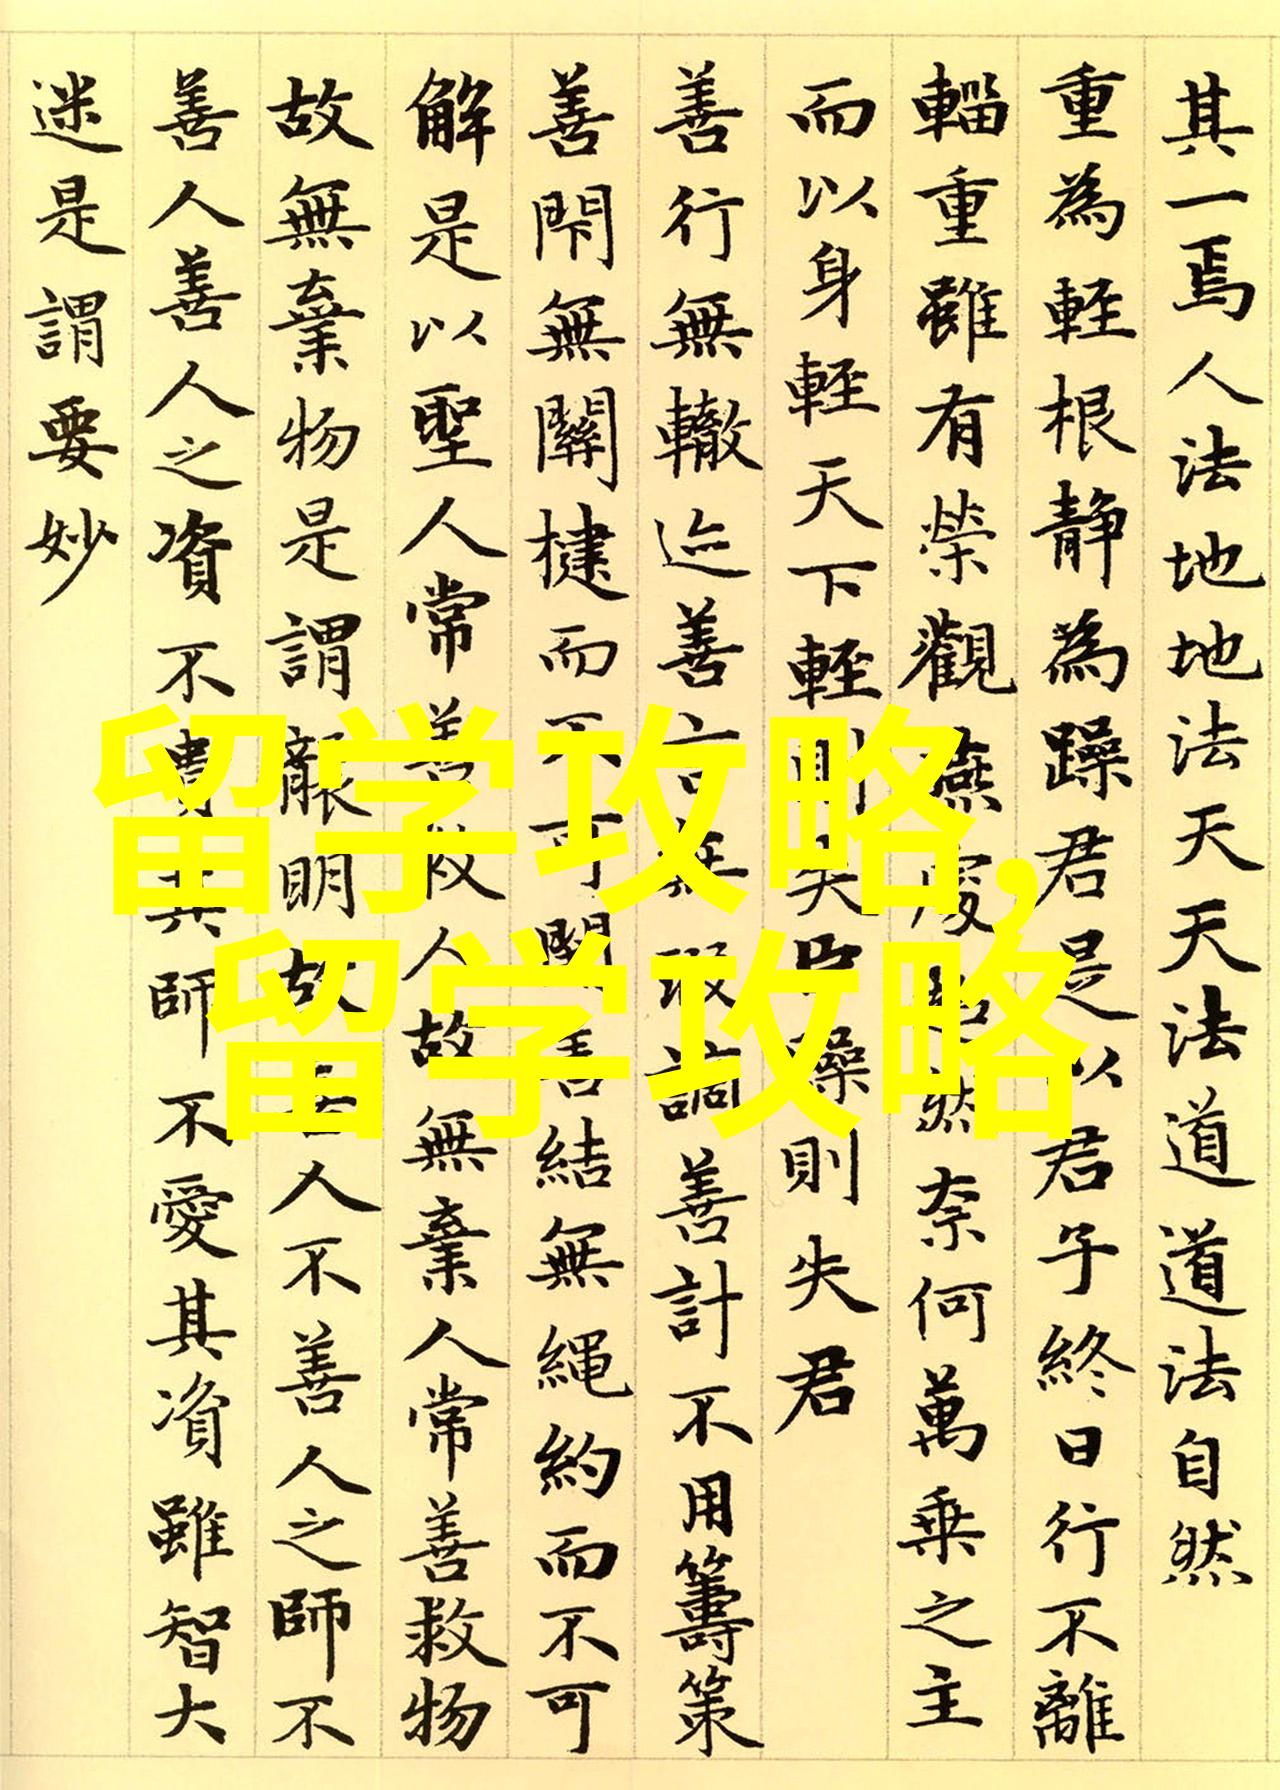 其一焉人法地地法天天法道道法自然
重為輕根靜為躁君是以君子終日行不離
輜重雖有榮觀燕處超然奈何萬乘之主
而以身輕天下輕則失臣躁則失君
善行無轍迹善言無瑕謫善計不用籌策
善閇無關楗而不可開善結無繩約而不可
解是以聖人常善救人故無棄人常善救物
故無棄物是謂襲明故善人不善人之師不
善人善人之資不貴其師不愛其資雖智大
迷是謂要妙
留学攻略,
留学攻略